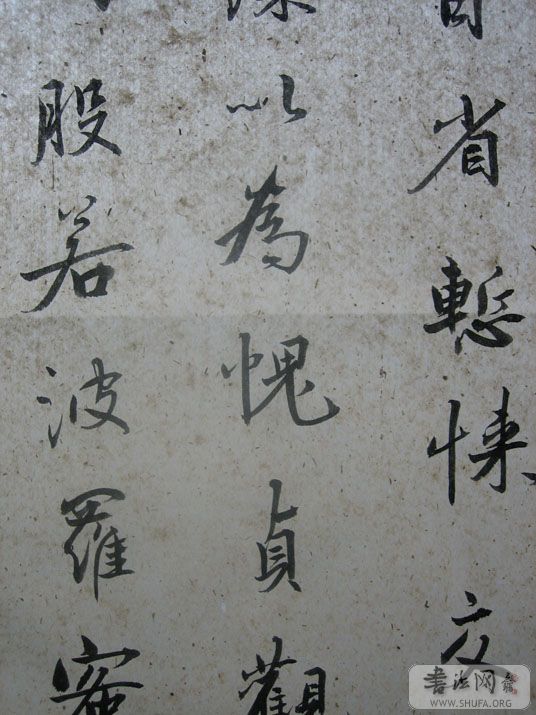 省慙悚交
以為愧貞觀
般若波羅
書法网
WWW.SHUFA.ORG